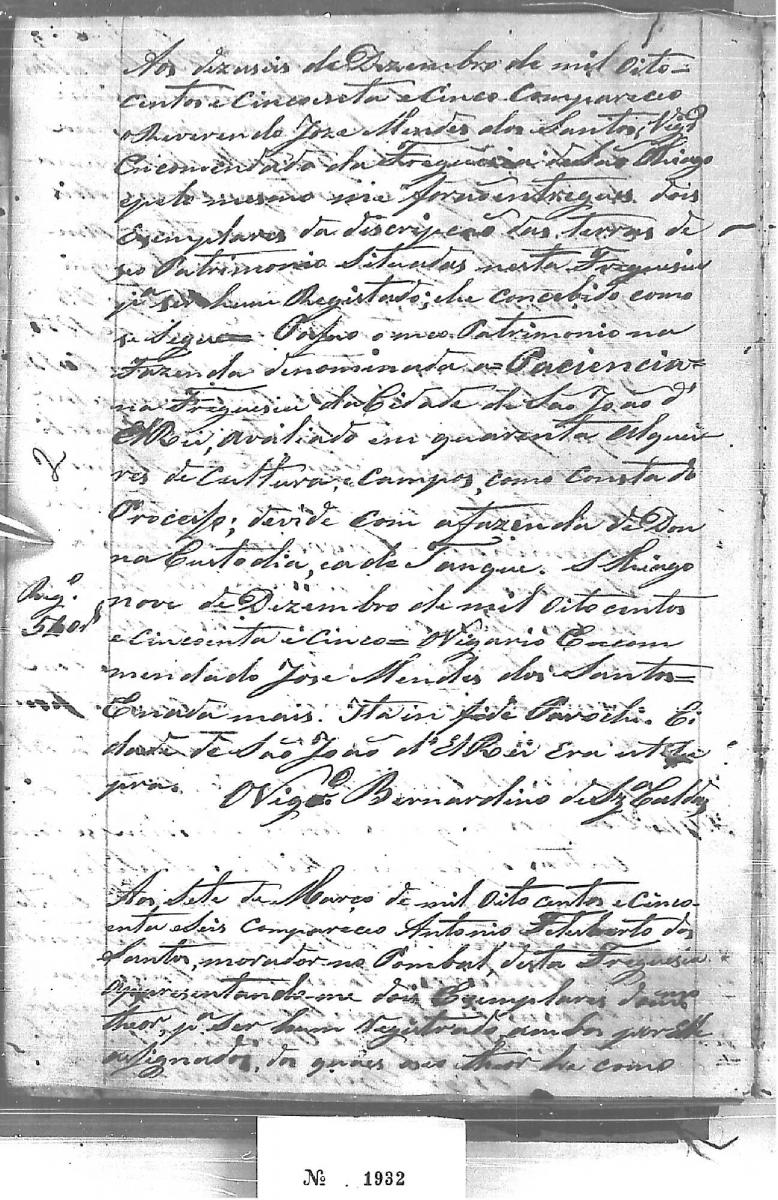 Aos dezaseis de Dezembro de mil Oito=
centos e Cincoenta e Cinco Compareceo
o Reverendo Joze Mendes dos Santos, Vigrº
Encomendado da Freguezia de São Thiago
e pelo mesmo me forão entregues dois
Exemplares da discripção das terras de
seo Patrimonio Situadas nesta Freguesia
pª ser hum Registado; he concebido como
se Segue= Pessuo o meo Patrimonio na
Fazenda denominada a=Paciencia=
na Freguesia da Cidade de São João d'
El Rei, avaliado em quarenta Alquei
res de Cultura, e Campos, como consta do
Processo; devide com a fazenda de Don
na Custodia, e a de Tanque. S Thiago
2
nove de Dezembro de mil oito centos
Pag.º
540rs
e cincoenta e cinco= O Vigario Encom
mendado Jose Mendes dos Santos=
E nada mais. Ita in fide Parochi. Ci
dade de São João d'El Rei Era ut Su
pra.
O Vigrº Bernardino de Szª Caldas
Aos Sete de Março de mil oito centos e Cinco
enta e Seis compareceo Antonio Feliberto dos
Santos, morador no Pombal, desta Freguesia
apresentando-me dois Exemplares do mmo
theor, pª Ser hum registrado, ambos por Elle
assignados, dos quaes o seo theor he como
Nº . 1932